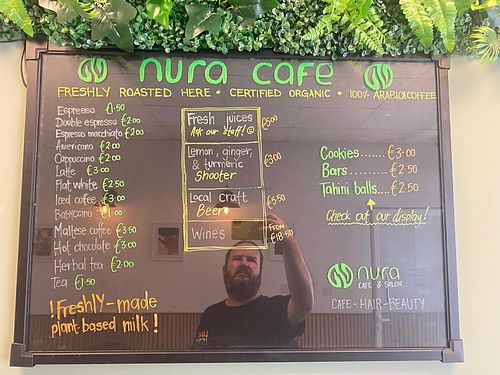 nura cafe
FRESHLY ROASTED HERE • CERTIFIED ORGANIC • 100% ARABICA COFFEE
Espresso €1.50
Double espresso €2.00
Espresso macchiato €2.00
Americano €2.00
Cappuccino €2.00
Latte €3.00
Flat white €2.50
Iced coffee €3.00
Babyccino €1.00
Maltese coffee €3.50
Hot chocolate €3.00
Herbal tea €2.00
Tea €1.50
!Freshly-made
plant-based milk!
Fresh juices €5.00
Ask our staff!
Lemon, ginger,
& turmeric €3.00
Shooter
Local craft €5.50
Beer
Wines FROM €18.50
Cookies.......€3.00
Bars.........€2.50
Tahini balls....€2.50
Check out our display!
nura
CAFE & SALON
CAFE-HAIR-BEAUTY